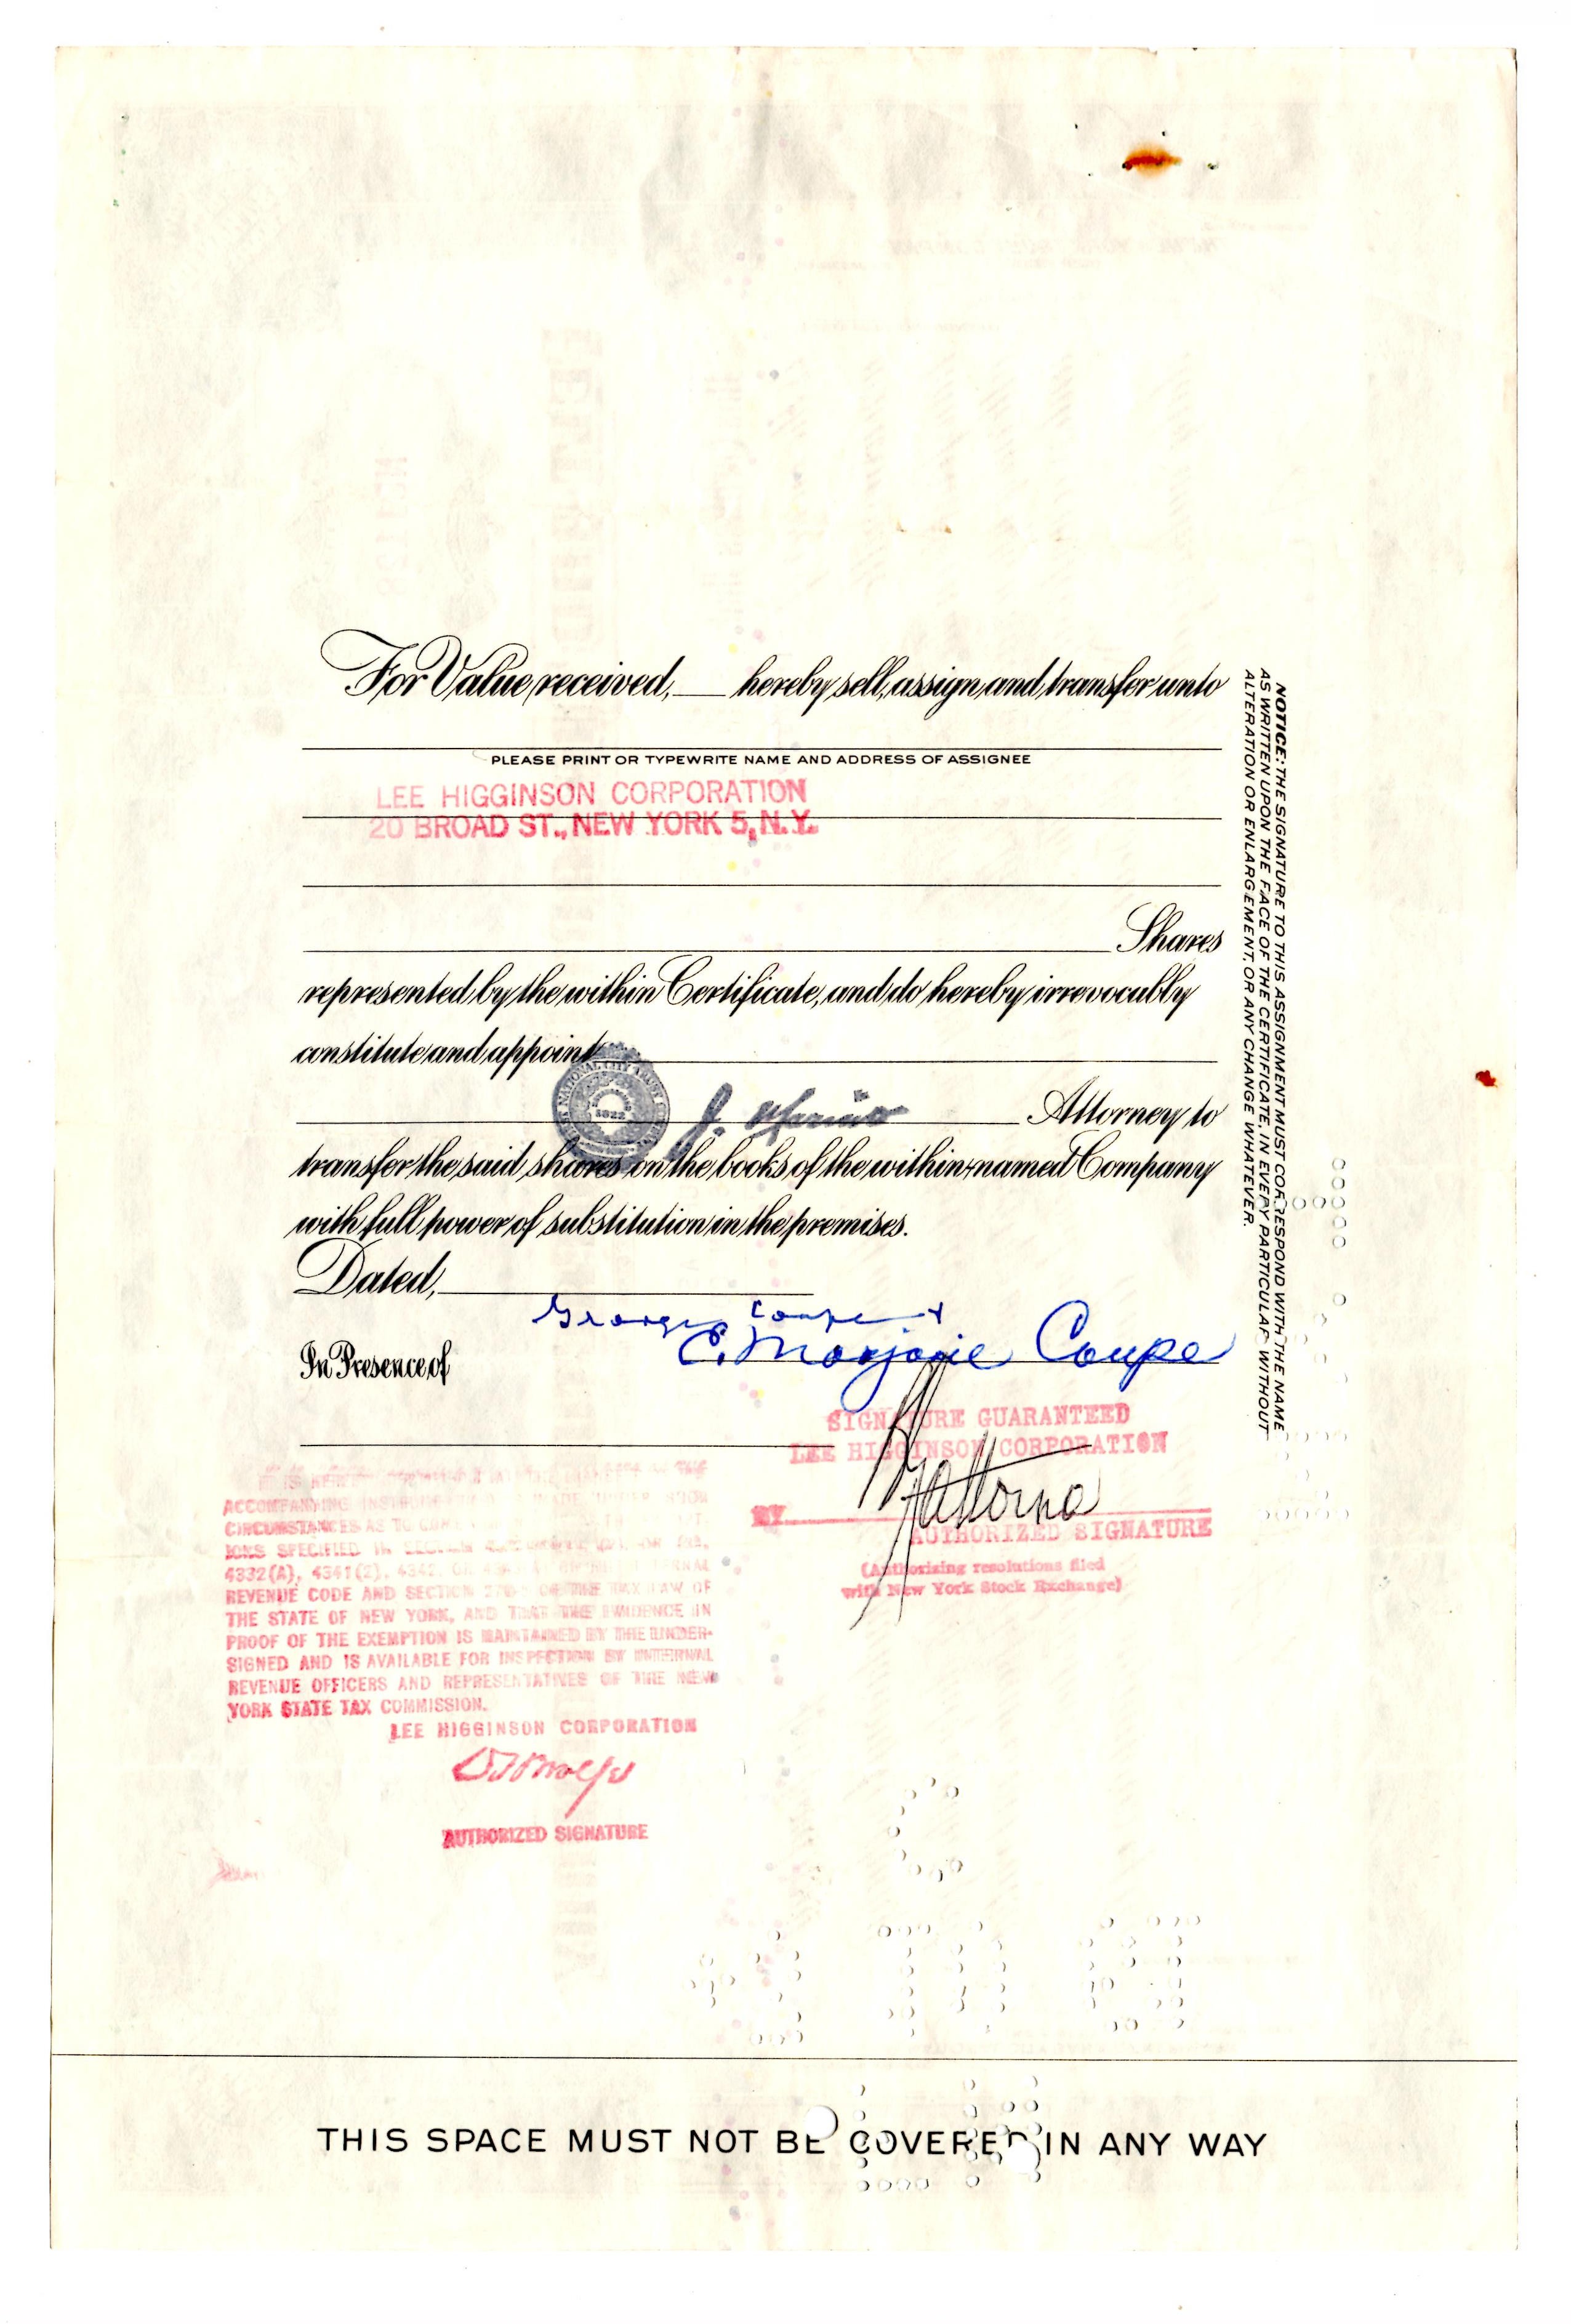 For Value received, ____ hereby sell, assign and transfer unto
PLEASE PRINT OR TYPEWRITE NAME AND ADDRESS OF ASSIGNEE
LEE HIGGINSON CORPORATION
20 BROAD ST., NEW YORK 5, N.Y.
Shares
represented by the within Certificate, and do hereby irrevocably
constitute and appoint
NATIONAL CITY
1822
J.
Attorney to
transfer the said shares on the books of the within-named Company
with full power of substitution in the premises.
Dated,
George Coupe &
E. Marjorie Coupe
In Presence of
SIGNATURE GUARANTEED
LEE HIGGINSON CORPORATION
BY
AUTHORIZED SIGNATURE
(Authorizing resolutions filed
with New York Stock Exchange)
ACCOMPANYING
CIRCUMSTANCES AS TO
IONS SPECIFIED IN
4332(A), 4341(2), 4342, OR
REVENUE CODE AND SECTION OF THE TAX LAW OF
THE STATE OF NEW YORK, AND THAT THE EVIDENCE IN
PROOF OF THE EXEMPTION IS MAINTAINED BY THE UNDER-
SIGNED AND IS AVAILABLE FOR INSPECTION BY INTERNAL
REVENUE OFFICERS AND REPRESENTATIVES OF THE NEW
YORK STATE TAX COMMISSION.
LEE HIGGINSON CORPORATION
AUTHORIZED SIGNATURE
NOTICE: THE SIGNATURE TO THIS ASSIGNMENT MUST CORRESPOND WITH THE NAME
AS WRITTEN UPON THE FACE OF THE CERTIFICATE, IN EVERY PARTICULAR WITHOUT
ALTERATION OR ENLARGEMENT, OR ANY CHANGE WHATEVER.
THIS SPACE MUST NOT BE COVERED IN ANY WAY